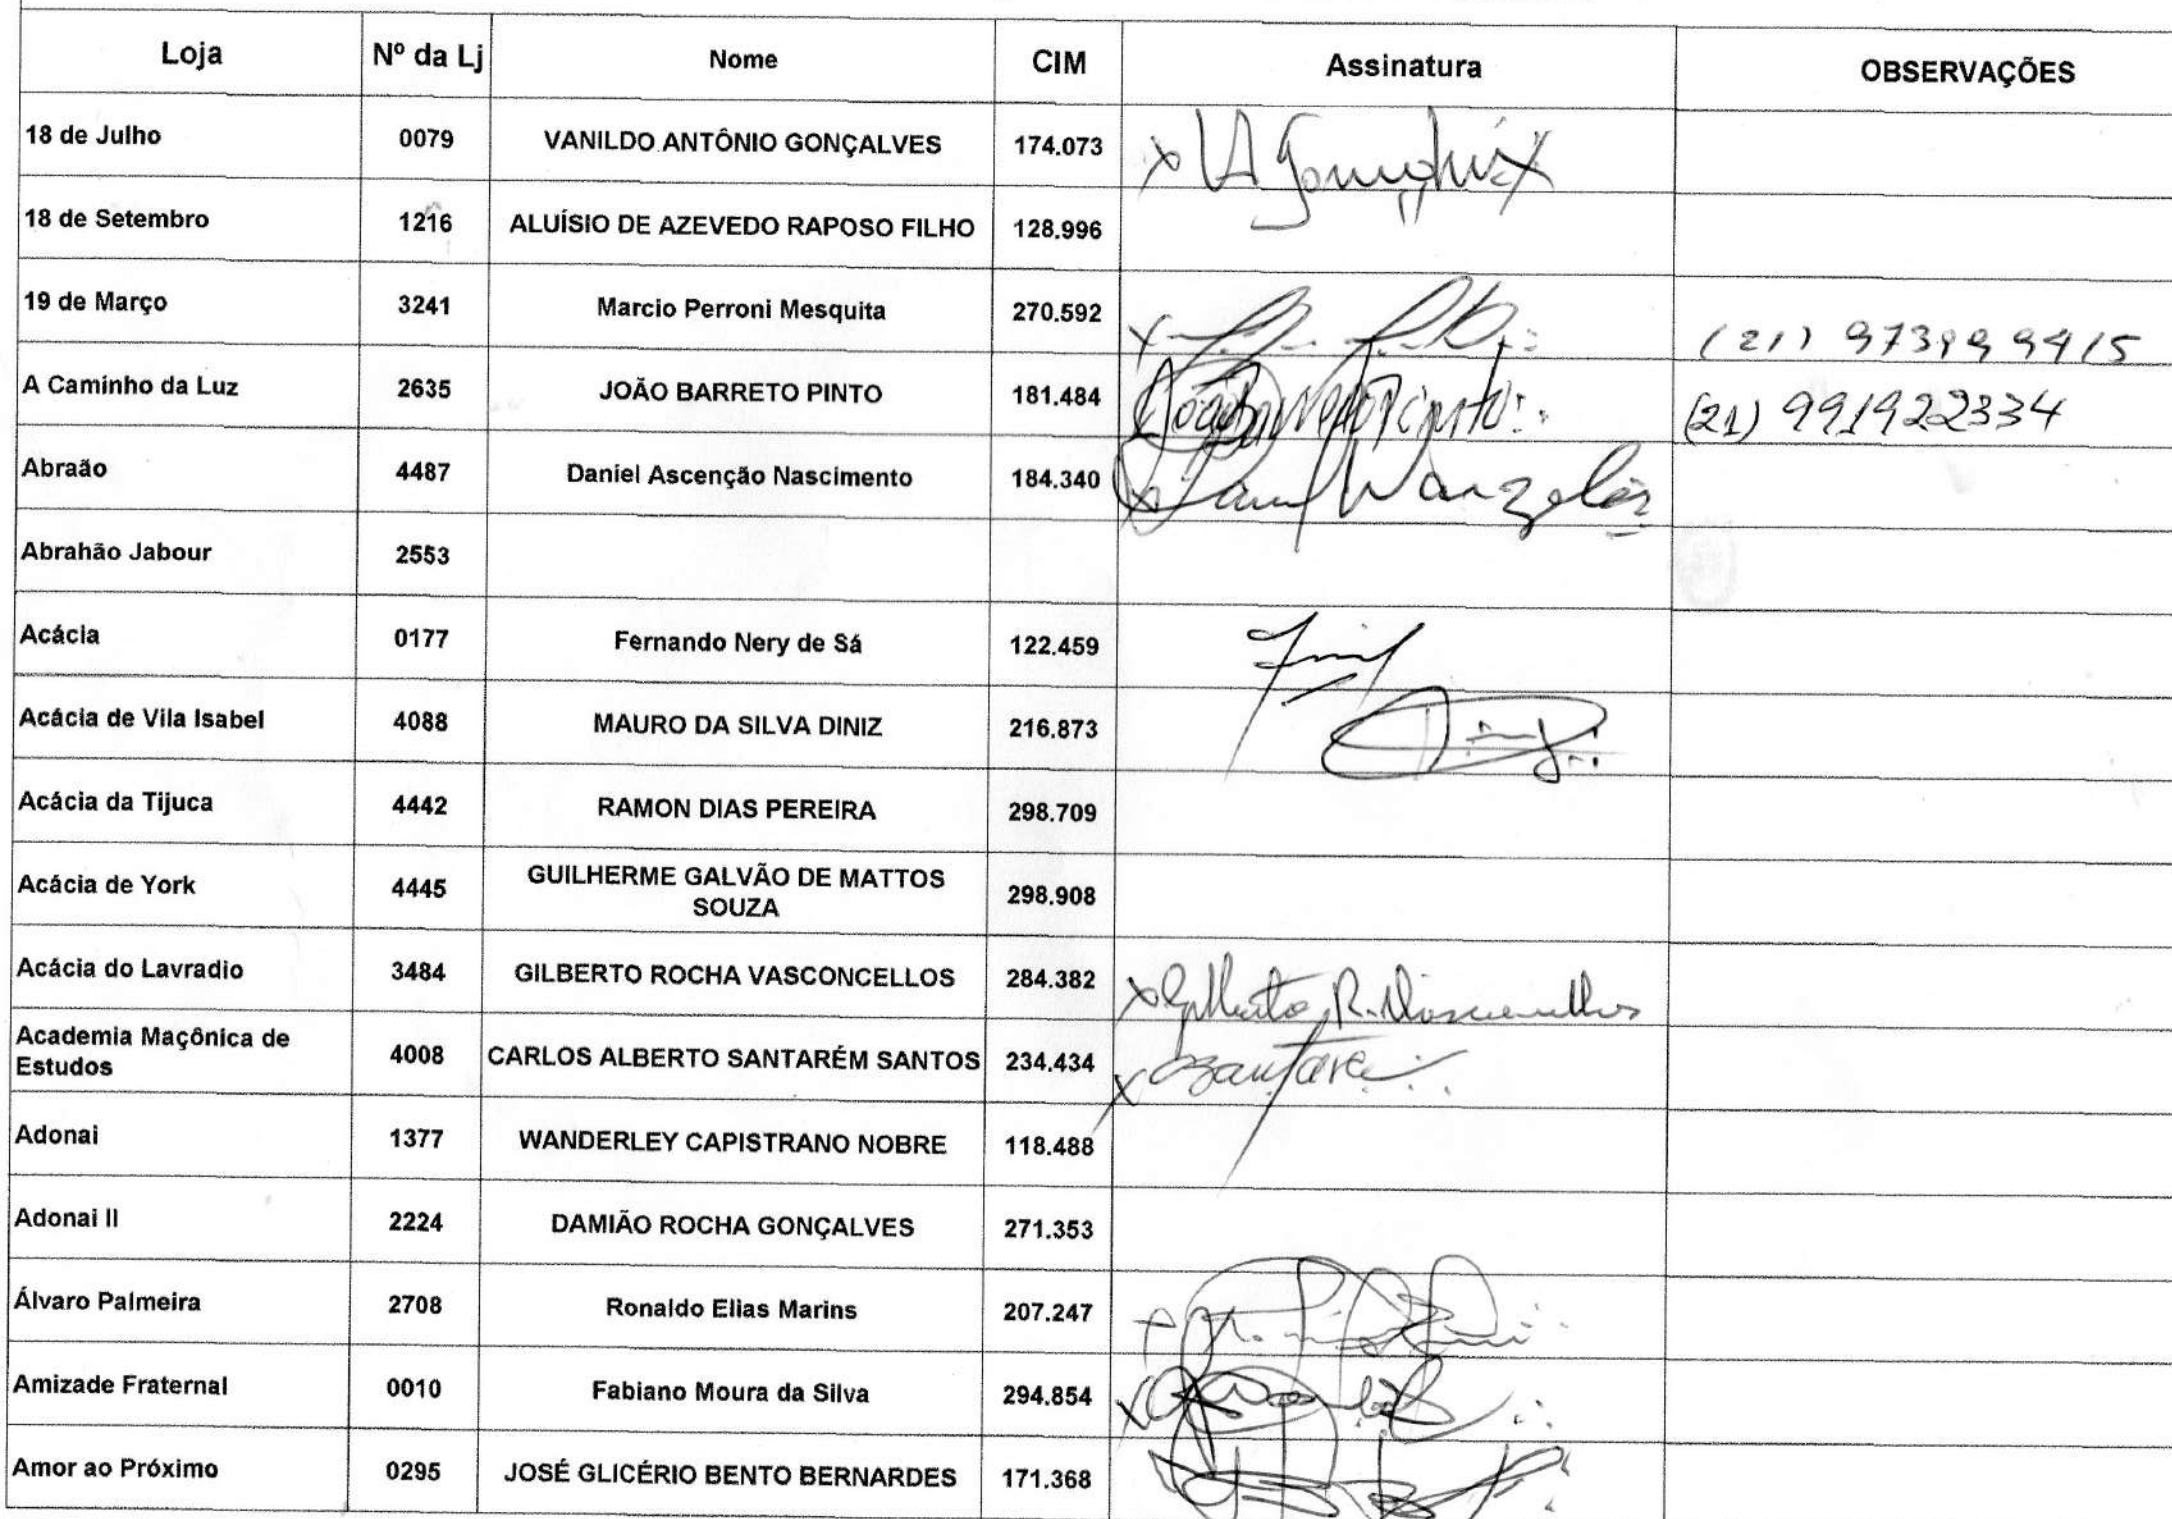 Loja Nº da Lj Nome CIM Assinatura OBSERVAÇÕES
18 de Julho 0079 VANILDO ANTÔNIO GONÇALVES 174.073
18 de Setembro 1216 ALUÍSIO DE AZEVEDO RAPOSO FILHO 128.996
19 de Março 3241 Marcio Perroni Mesquita 270.592 (21) 973999415
A Caminho da Luz 2635 JOÃO BARRETO PINTO 181.484 João Barreto Pinto (21) 991922334
Abraão 4487 Daniel Ascenção Nascimento 184.340
Abrahão Jabour 2553
Acácia 0177 Fernando Nery de Sá 122.459
Acácia de Vila Isabel 4088 MAURO DA SILVA DINIZ 216.873
Acácia da Tijuca 4442 RAMON DIAS PEREIRA 298.709
Acácia de York 4445 GUILHERME GALVÃO DE MATTOS SOUZA 298.908
Acácia do Lavradio 3484 GILBERTO ROCHA VASCONCELLOS 284.382 x Gilberto R. Vasconcellos
Academia Maçônica de Estudos 4008 CARLOS ALBERTO SANTARÉM SANTOS 234.434
Adonai 1377 WANDERLEY CAPISTRANO NOBRE 118.488
Adonai II 2224 DAMIÃO ROCHA GONÇALVES 271.353
Álvaro Palmeira 2708 Ronaldo Elias Marins 207.247
Amizade Fraternal 0010 Fabiano Moura da Silva 294.854
Amor ao Próximo 0295 JOSÉ GLICÉRIO BENTO BERNARDES 171.368